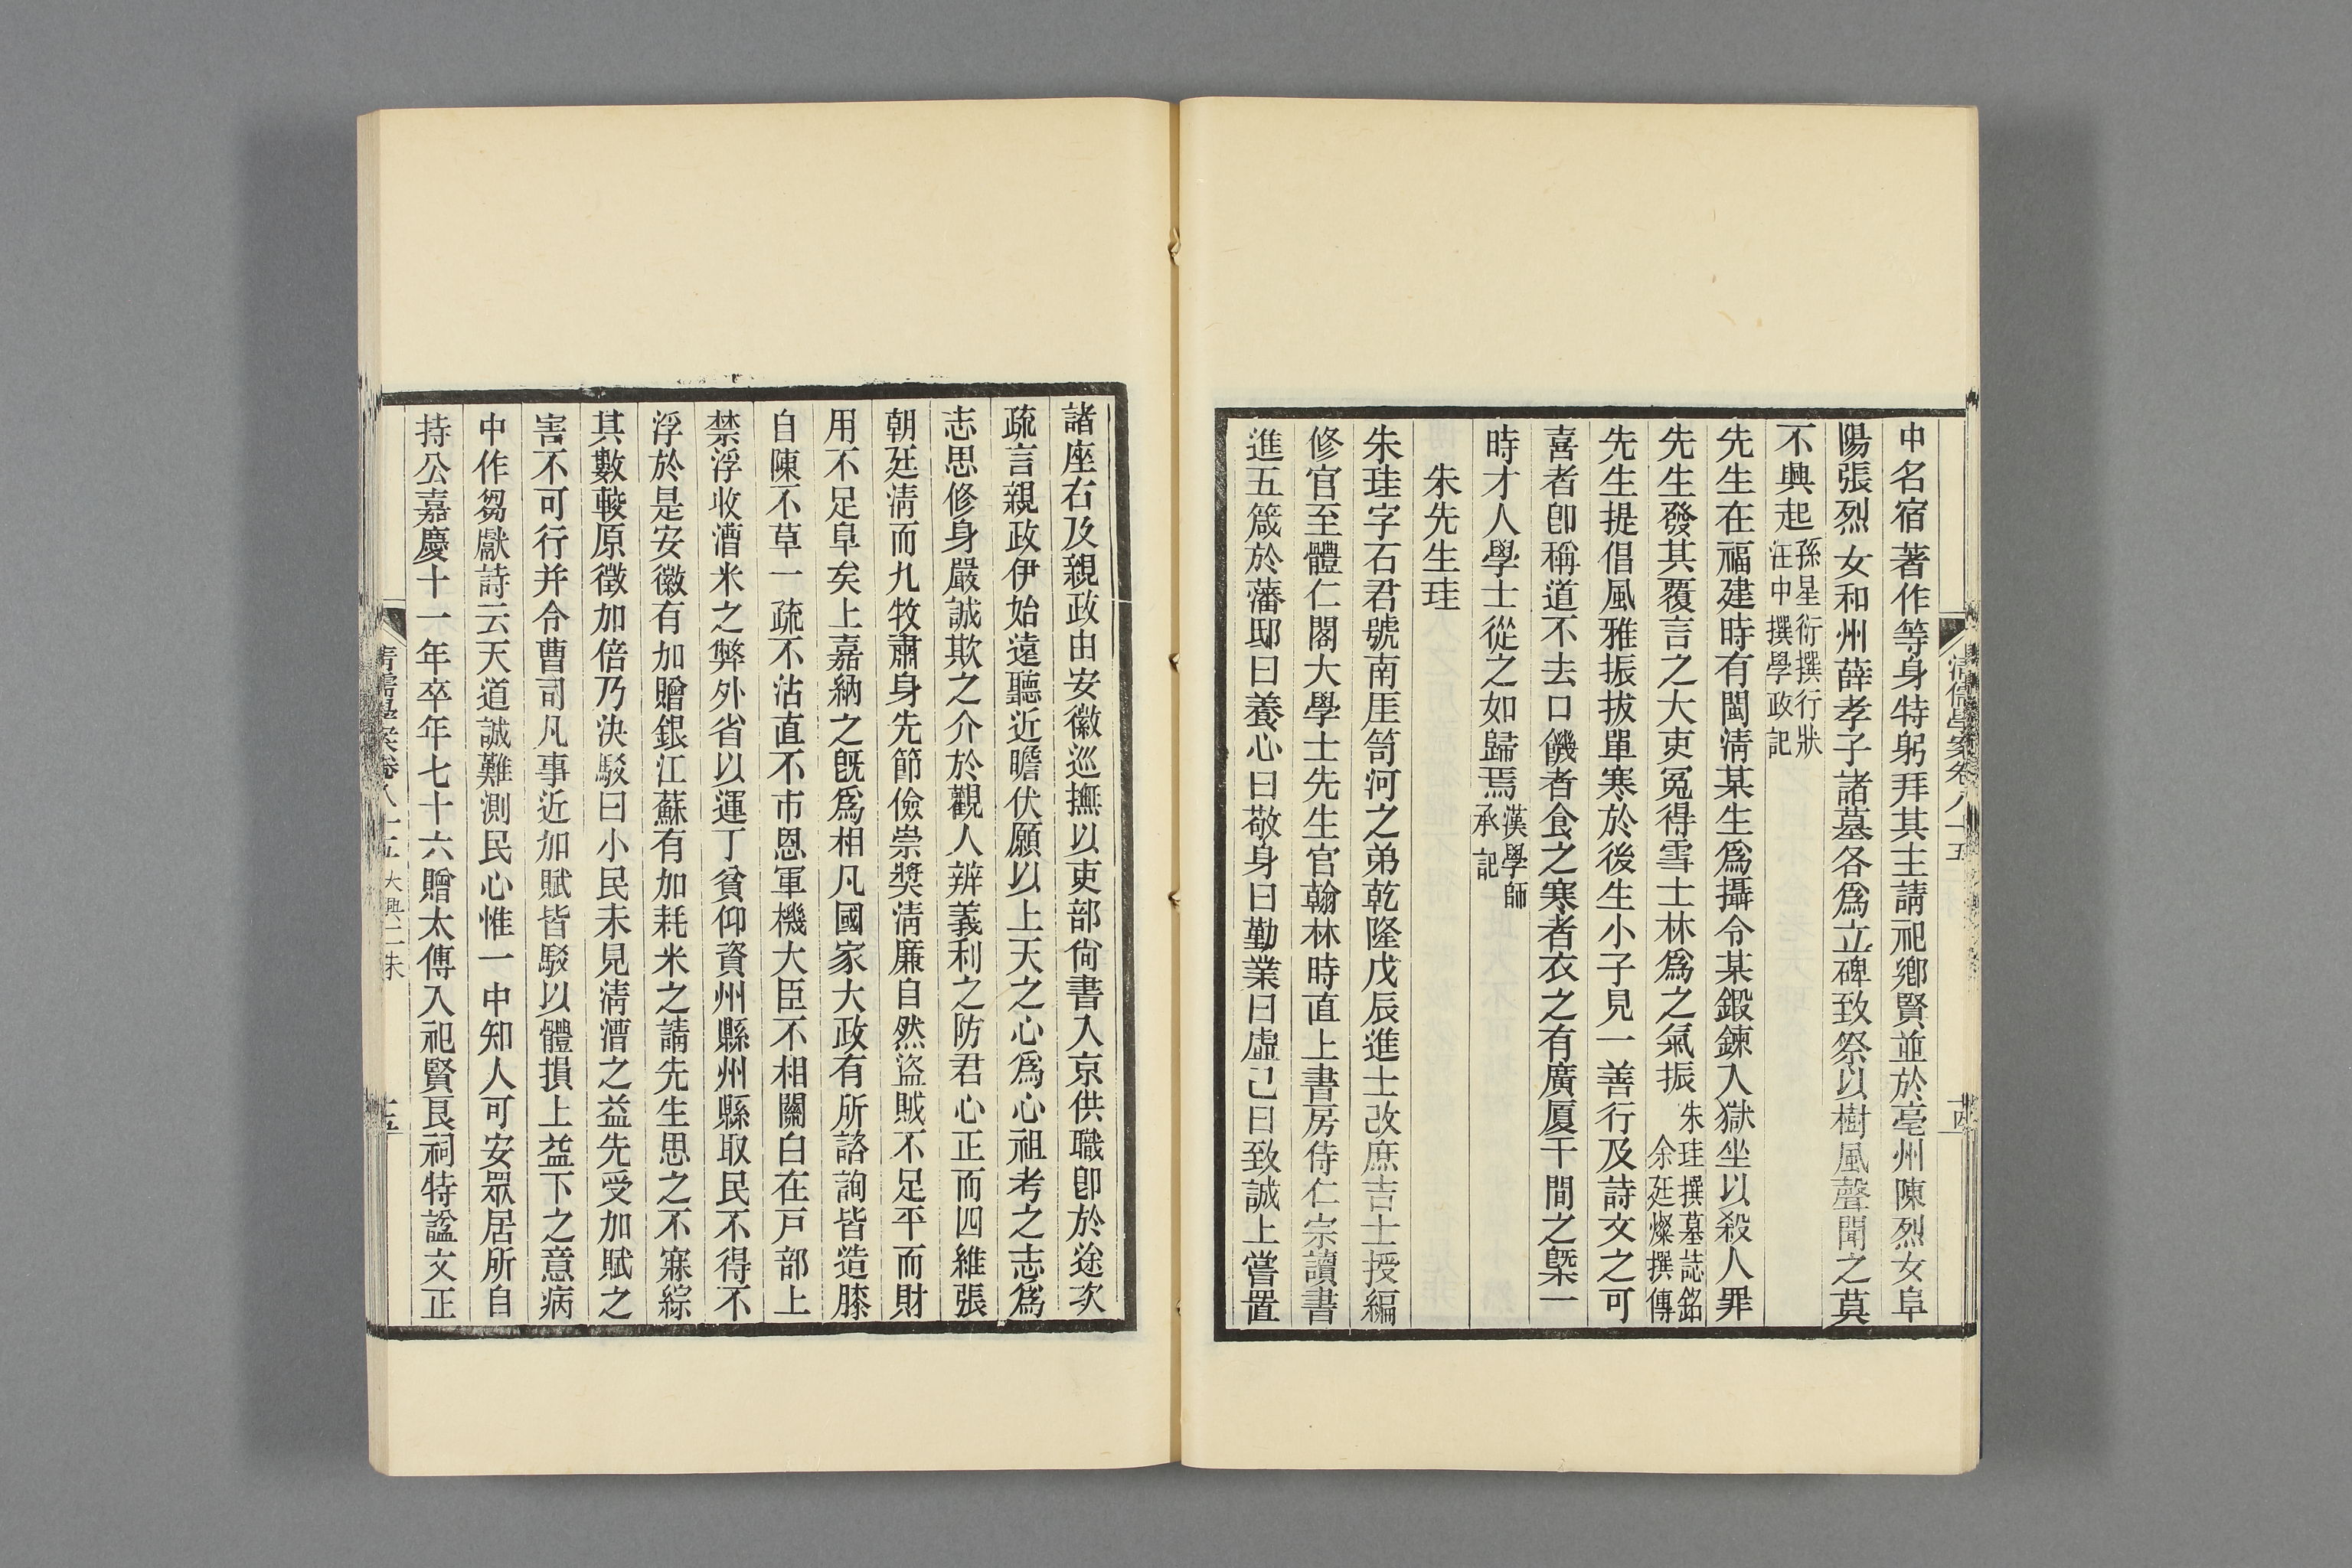 清儒學案卷八十五
十四
中名宿著作等身特躬拜其主請祀鄉賢並於亳州陳烈女阜
陽張烈女和州薛孝子諸墓各爲立碑致祭以樹風聲聞之莫
不興起孫星衍撰行狀
汪中撰學政記
先生在福建時有閩淸某生爲攝令某鍛鍊入獄坐以殺人罪
先生發其覆言之大吏冤得雪士林爲之氣振朱珪撰墓誌銘
余廷燦撰傳
先生提倡風雅振拔單寒於後生小子見一善行及詩文之可
喜者卽稱道不去口饑者食之寒者衣之有廣厦千間之槩一
時才人學士從之如歸焉漢學師
承記
朱先生珪
朱珪字石君號南厓笥河之弟乾隆戊辰進士改庶吉士授編
修官至體仁閣大學士先生官翰林時直上書房侍仁宗讀書
進五箴於藩邸曰養心曰敬身曰勤業曰虛己曰致誠上嘗置
諸座右及親政由安徽巡撫以吏部尙書入京供職卽於途次
疏言親政伊始遠聽近瞻伏願以上天之心爲心祖考之志爲
志思修身嚴誠欺之介於觀人辨義利之防君心正而四維張
朝廷淸而九牧肅身先節儉崇奬淸廉自然盜賊不足平而財
用不足阜矣上嘉納之旣爲相凡國家大政有所諮詢皆造膝
自陳不草一疏不沽直不市恩軍機大臣不相關白在戸部上
禁浮收漕米之弊外省以運丁貧仰資州縣州縣取民不得不
浮於是安徽有加贈銀江蘇有加耗米之請先生思之不寐綜
其數較原徵加倍乃決駁曰小民未見淸漕之益先受加賦之
害不可行并令曹司凡事近加賦皆駁以體損上益下之意病
中作芻獻詩云天道誠難測民心惟一中知人可安眾居所自
持公嘉慶十一年卒年七十六贈太傅入祀賢良祠特諡文正
清儒學案卷八十五 大興二朱
十五